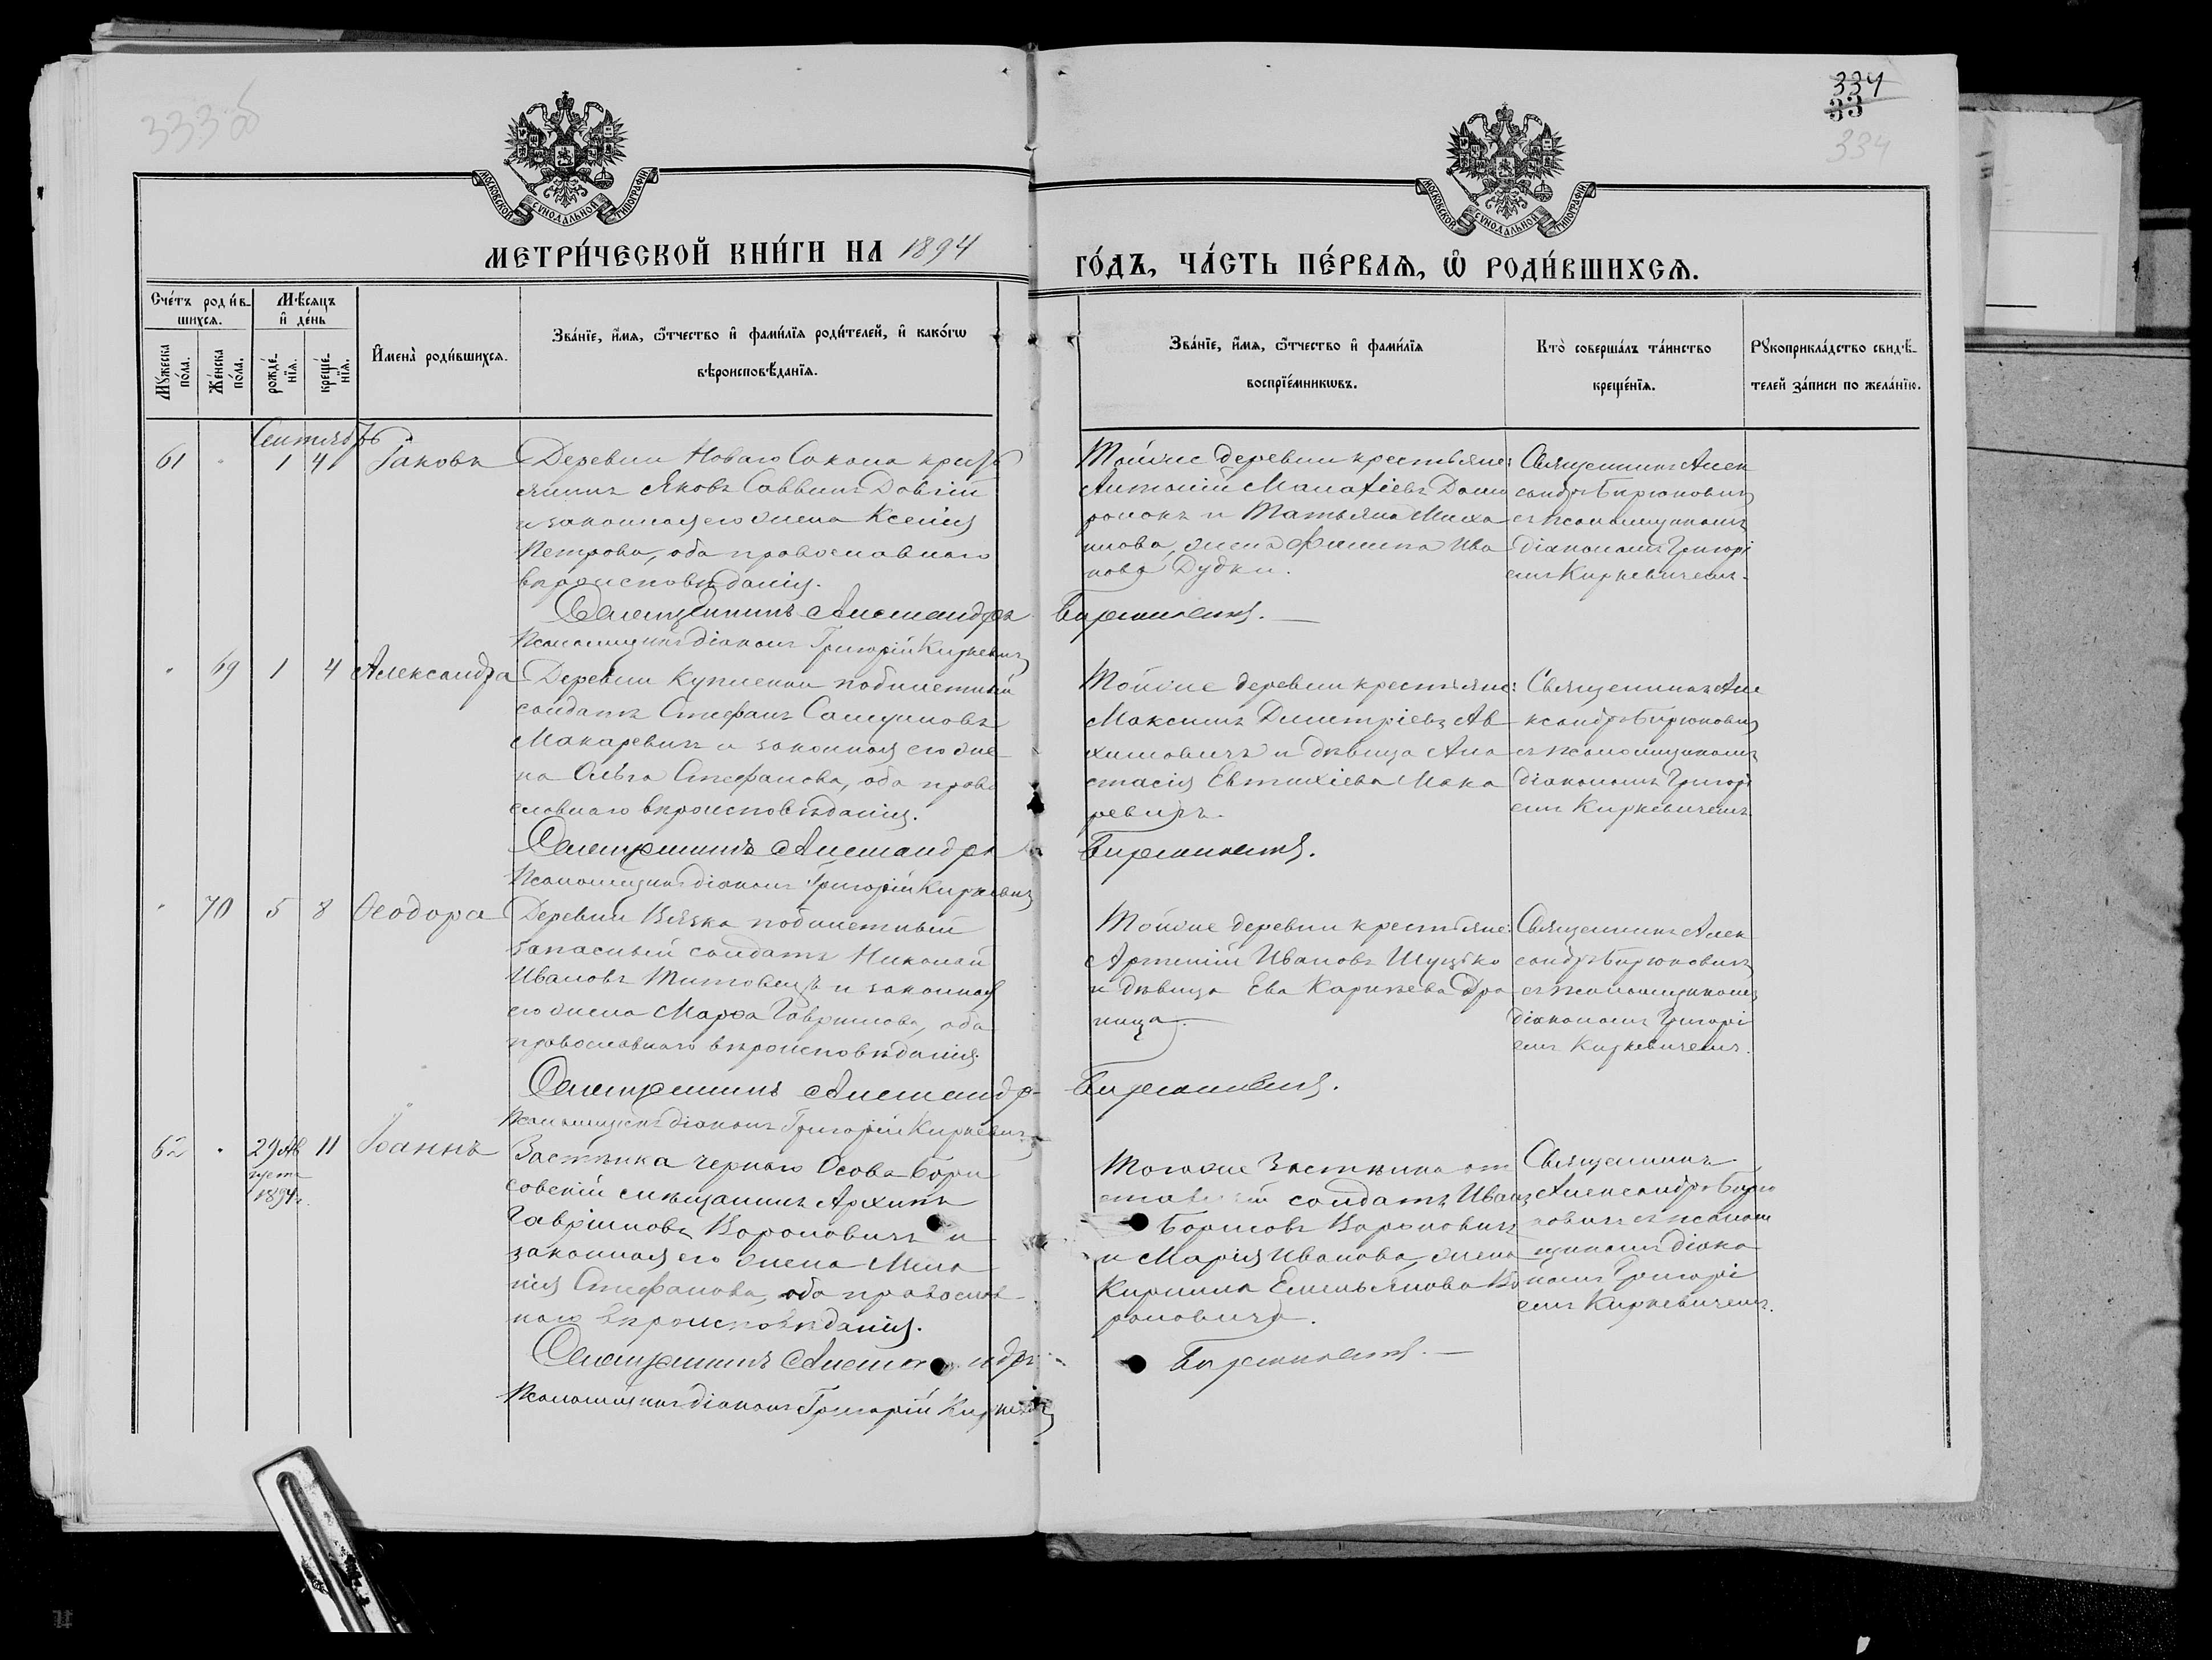 333 об
334
33
334
МОСКОВСКОЙ СѴНОДАЛЬНОЙ ТИПОГРАФІИ
МОСКОВСКОЙ СѴНОДАЛЬНОЙ ТИПОГРАФІИ
МЕТРИ́ЧЕСКОЙ КНИ́ГИ НА 1894
ГО́ДЪ, ЧА́СТЬ ПЕ́РВАЯ, Ѡ҆ РОДИ́ВШИХСЯ.
Сче́тъ роди́в-
шихся.
Мѣ́сяцъ
и҆ де́нь
Мꙋ́жеска
по́ла.
Же́нска
по́ла.
рожде́-
нїя.
креще́-
нїя.
И҆мена̀ роди́вшихся.
Зва́нїе, и҆́мя, ѻ҆́тчество и҆ фами́лїя роди́телей, и҆ како́гѡ
вѣроисповѣ́данїя.
Зва́нїе, и҆́мя, ѻ҆́тчество и҆ фами́лїя
воспрїе́мникѡвъ.
Кто̀ соверша́лъ та́инство
креще́нїя.
Рꙋкоприкла́дство свидѣ́-
телей за́писи по жела́нїю.
Сентябрь
61 1 4 Іаковъ
Деревни Новаго Сокола кресть
янинъ Яковъ Саввинъ
и законная его жена Ксенія
Петрова, оба православнаго
вѣроисповѣданія.
Священникъ Александръ
Псаломщикъ діаконъ Григорій Киркевичъ
Тойже деревни крестьяне:
Антоній
и Татьяна Миха
илова, жена Филипа Ива
нова Дудки.
Бирюковичъ.
Священникъ Алек
сандръ Бирюковичъ
съ псаломщикомъ
діакономъ Григорі
емъ Киркевичемъ.
69 1 4 Александра
Деревни побилетный
солдатъ Стефанъ
Макаревичъ и законная его же
на Ольга Стефанова, оба право
славнаго вѣроисповѣданія.
Священникъ Александръ
Псаломщикъ діаконъ Григорій Киркевичъ
Тойже деревни крестьяне:
Максимъ Димитріевъ Ав
химовичъ и дѣвица Ана
стасія Евтихіева Мака
ревичъ.
Бирюковичъ.
Священникъ Але
ксандръ Бирюковичъ
съ псаломщикомъ
діакономъ Григорі
емъ Киркевичемъ
70 5 8 Ѳеодора
Деревни Вязка побилетный
запасный солдатъ Николай
Ивановъ Титовецъ и законная
его жена Марѳа Гаврилова, оба
православнаго вѣроисповѣданія.
Священникъ Александръ
Псаломщикъ діаконъ Григорій Киркевичъ
Тойже деревни крестьяне:
Артемій Ивановъ Шуцько
и дѣвица Ева Карнѣева Дра
ница.
Бирюковичъ.
Священникъ Алек
сандръ Бирюковичъ
съ псаломщикомъ
діакономъ Григорі
емъ Киркевичемъ.
62 29 Ав 11 Іоаннъ
густа
1894 г.
Застѣнка чернаго Осова Бори
совскій мѣщанинъ Архипъ
Гавріиловъ Вороновичъ и
законная его жена Мела
нія Стефанова, оба православ-
наго вѣроисповѣданія.
Священникъ Александръ
Псаломщикъ діаконъ Григорій Киркевичъ
Тогоже Застѣнка от
ставной солдатъ Иванъ
Борисовъ Вороновичъ
и Марія Иванова, жена
Кирилла Емельянова Во
роновича.
Бирюковичъ.
Священникъ
Александръ Бирю
ковичъ съ псалом
щикомъ діако
номъ Григорі
емъ Киркевичемъ.